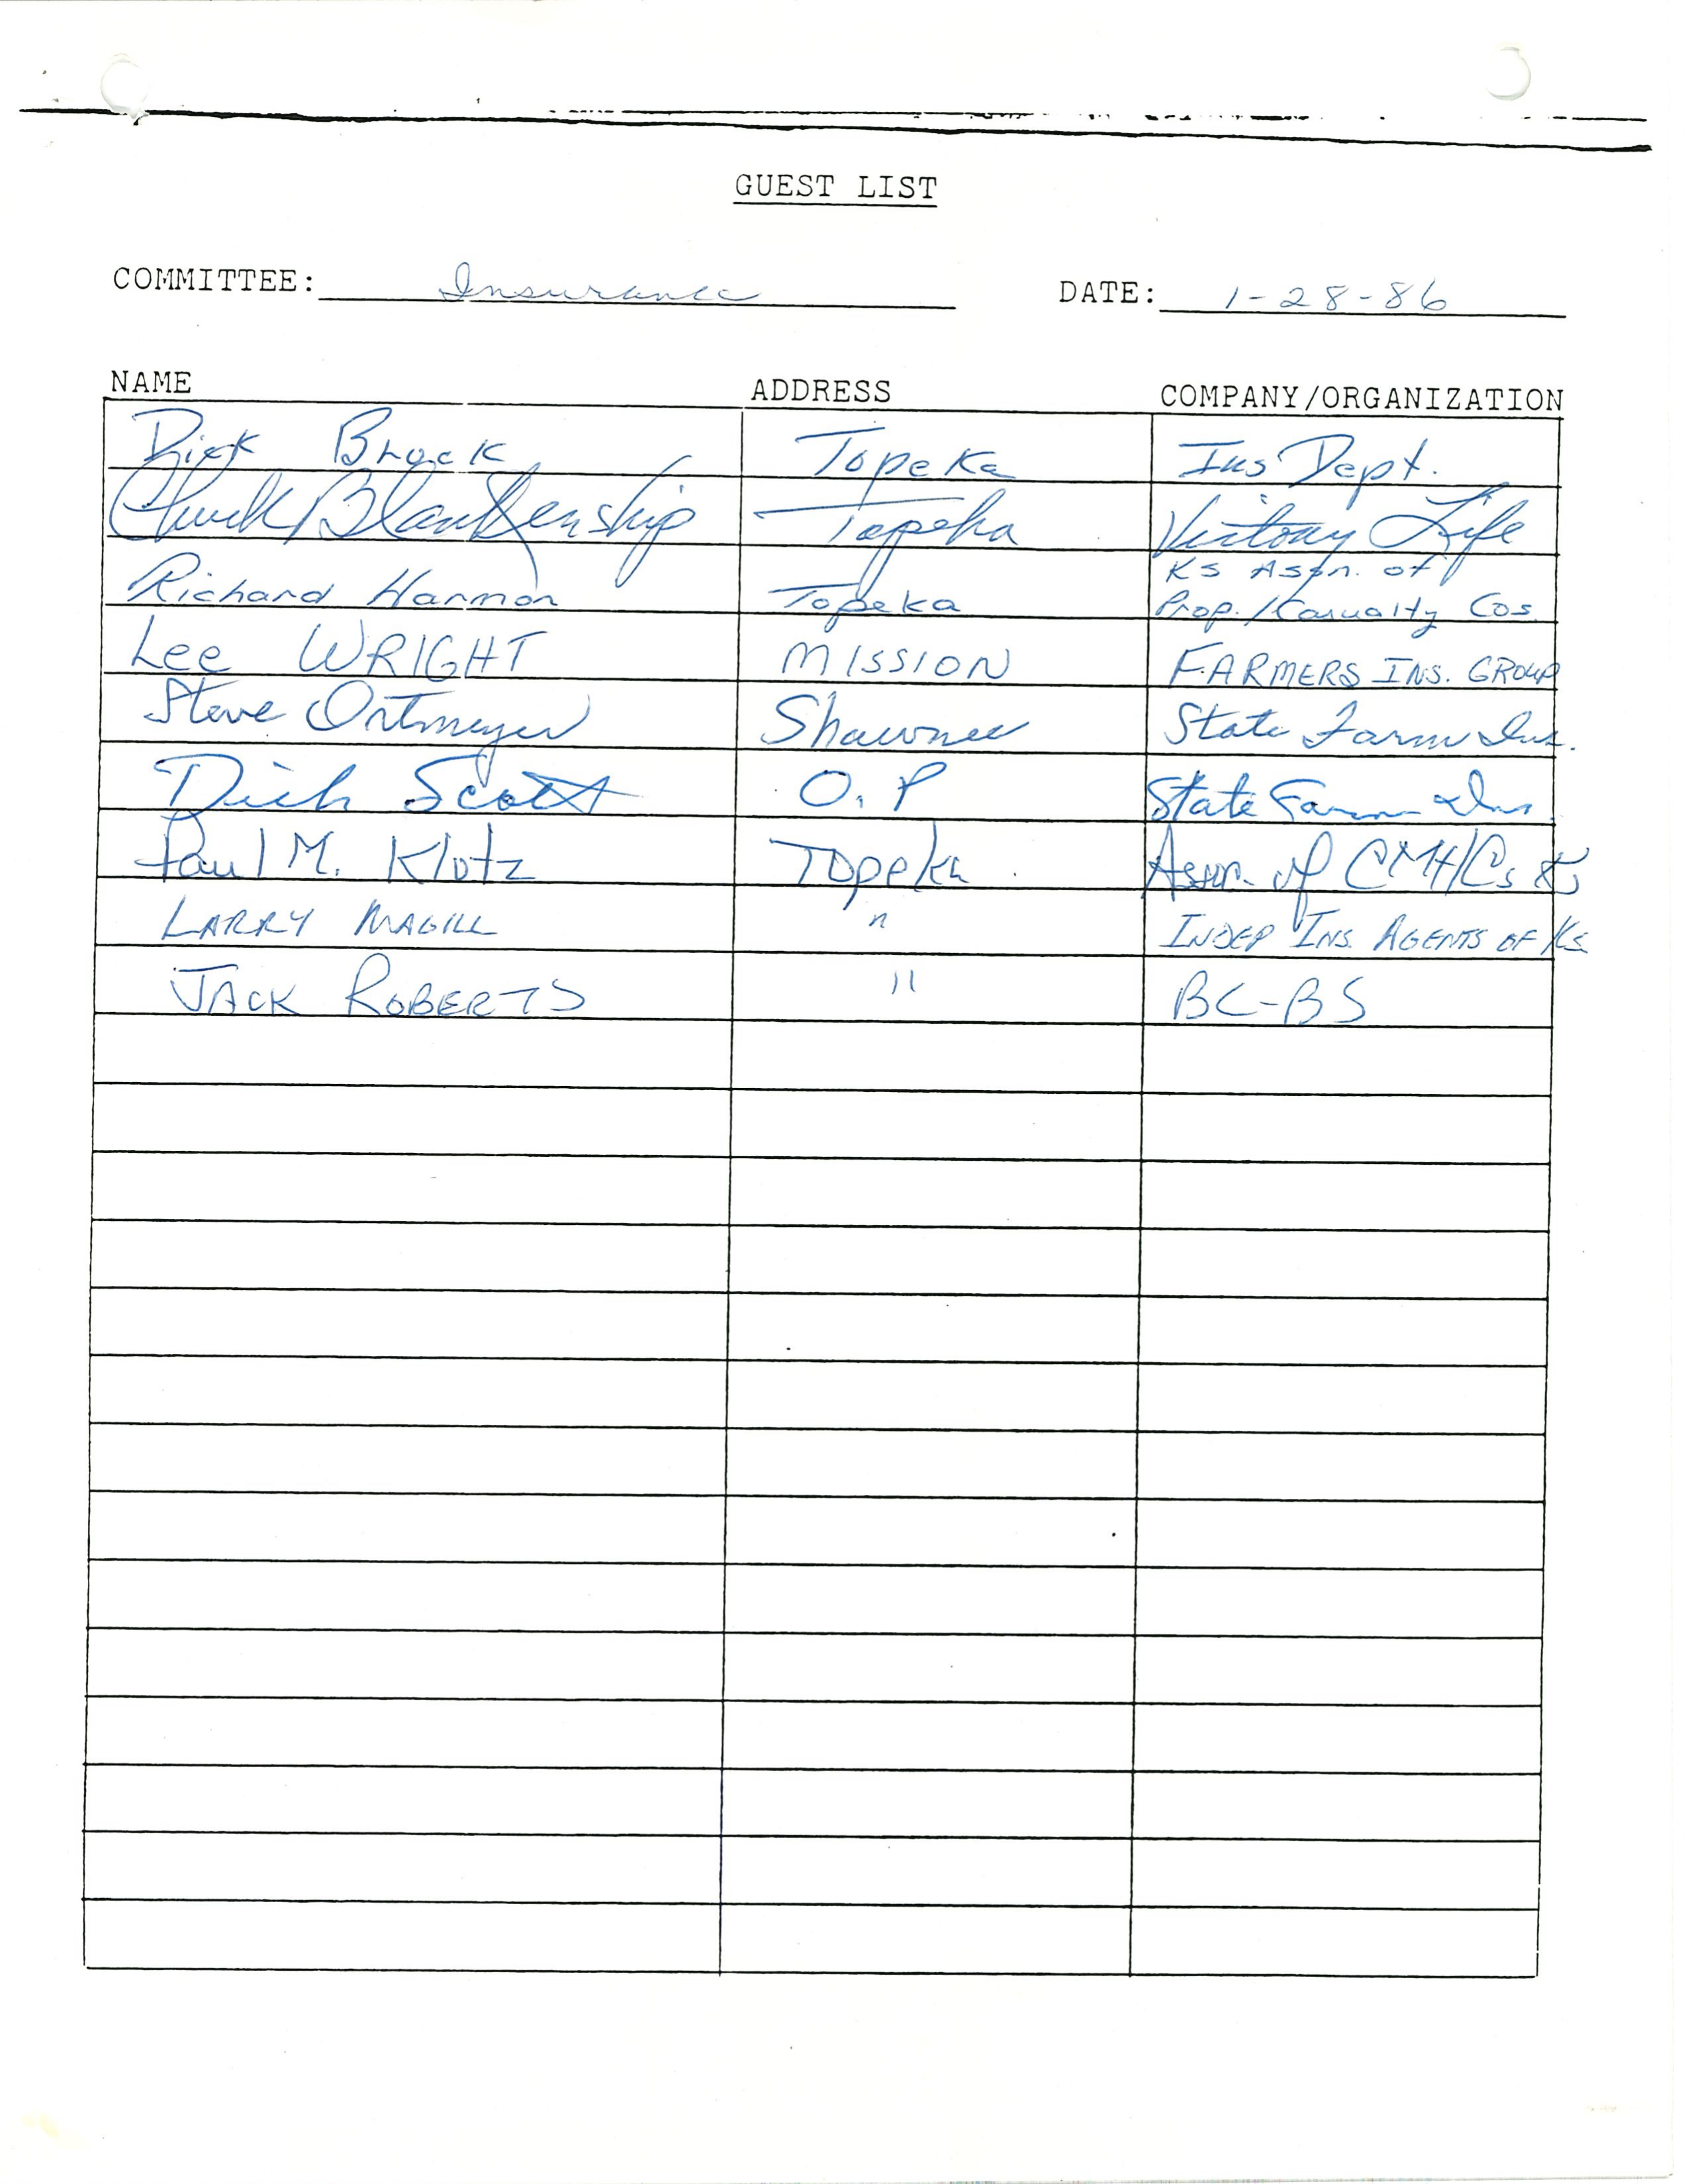 GUEST LIST
COMMITTEE: Insurance DATE: 1-28-86
NAME ADDRESS COMPANY/ORGANIZATION
Dick Brock Topeka Ins Dept.
Chuck Blankenship Topeka Victory Life
Richard Harmon Topeka Ks Assn. of
Prop./Casualty Cos.
Lee WRIGHT MISSION FARMERS INS. GROUP
Steve Ortmeyer Shawnee State Farm Ins.
Dick Scott O.P State Farm Ins.
Paul M. Klotz Topeka Assn. of CMHCs Ks
LARRY MAGILL " INDEP INS. AGENTS OF KS
JACK ROBERTS " BC-BS